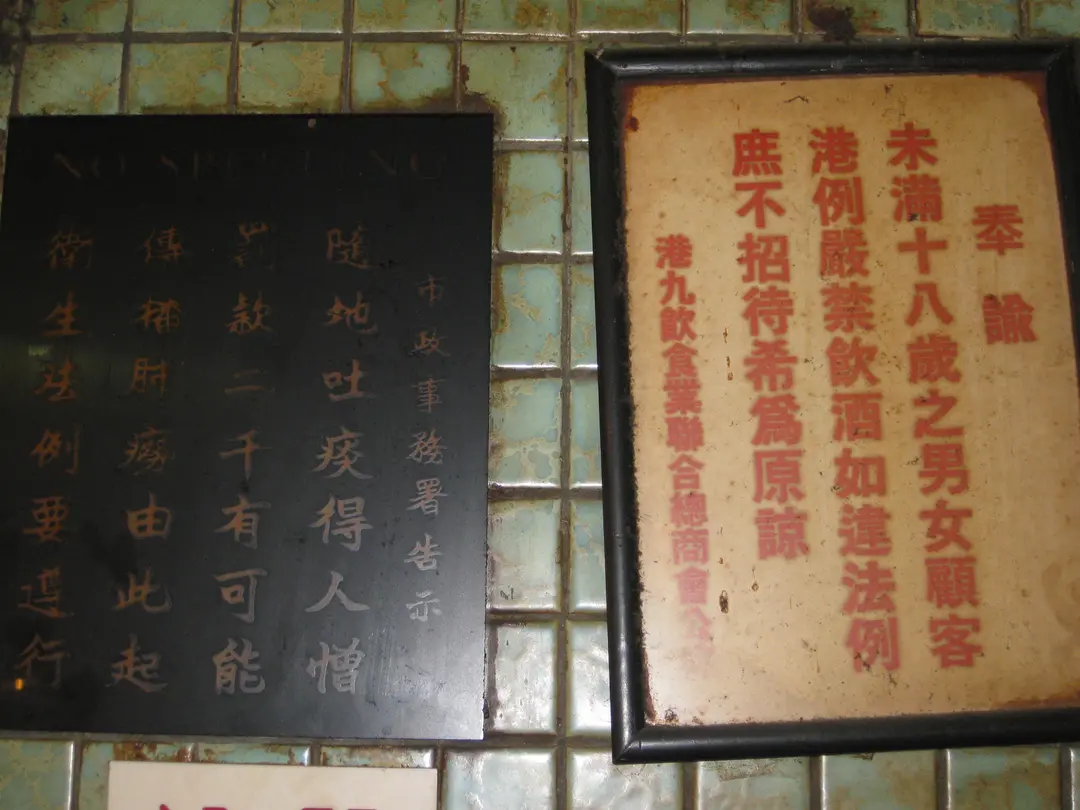 NO SPITTING
市政事務署告示
隨地吐痰得人憎
罰款二千有可能
傳播肺癆由此起
衛生法例要遵行
奉諭
未滿十八歲之男女顧客
港例嚴禁飲酒如違法例
庶不招待希為原諒
港九飲食業聯合總商會公